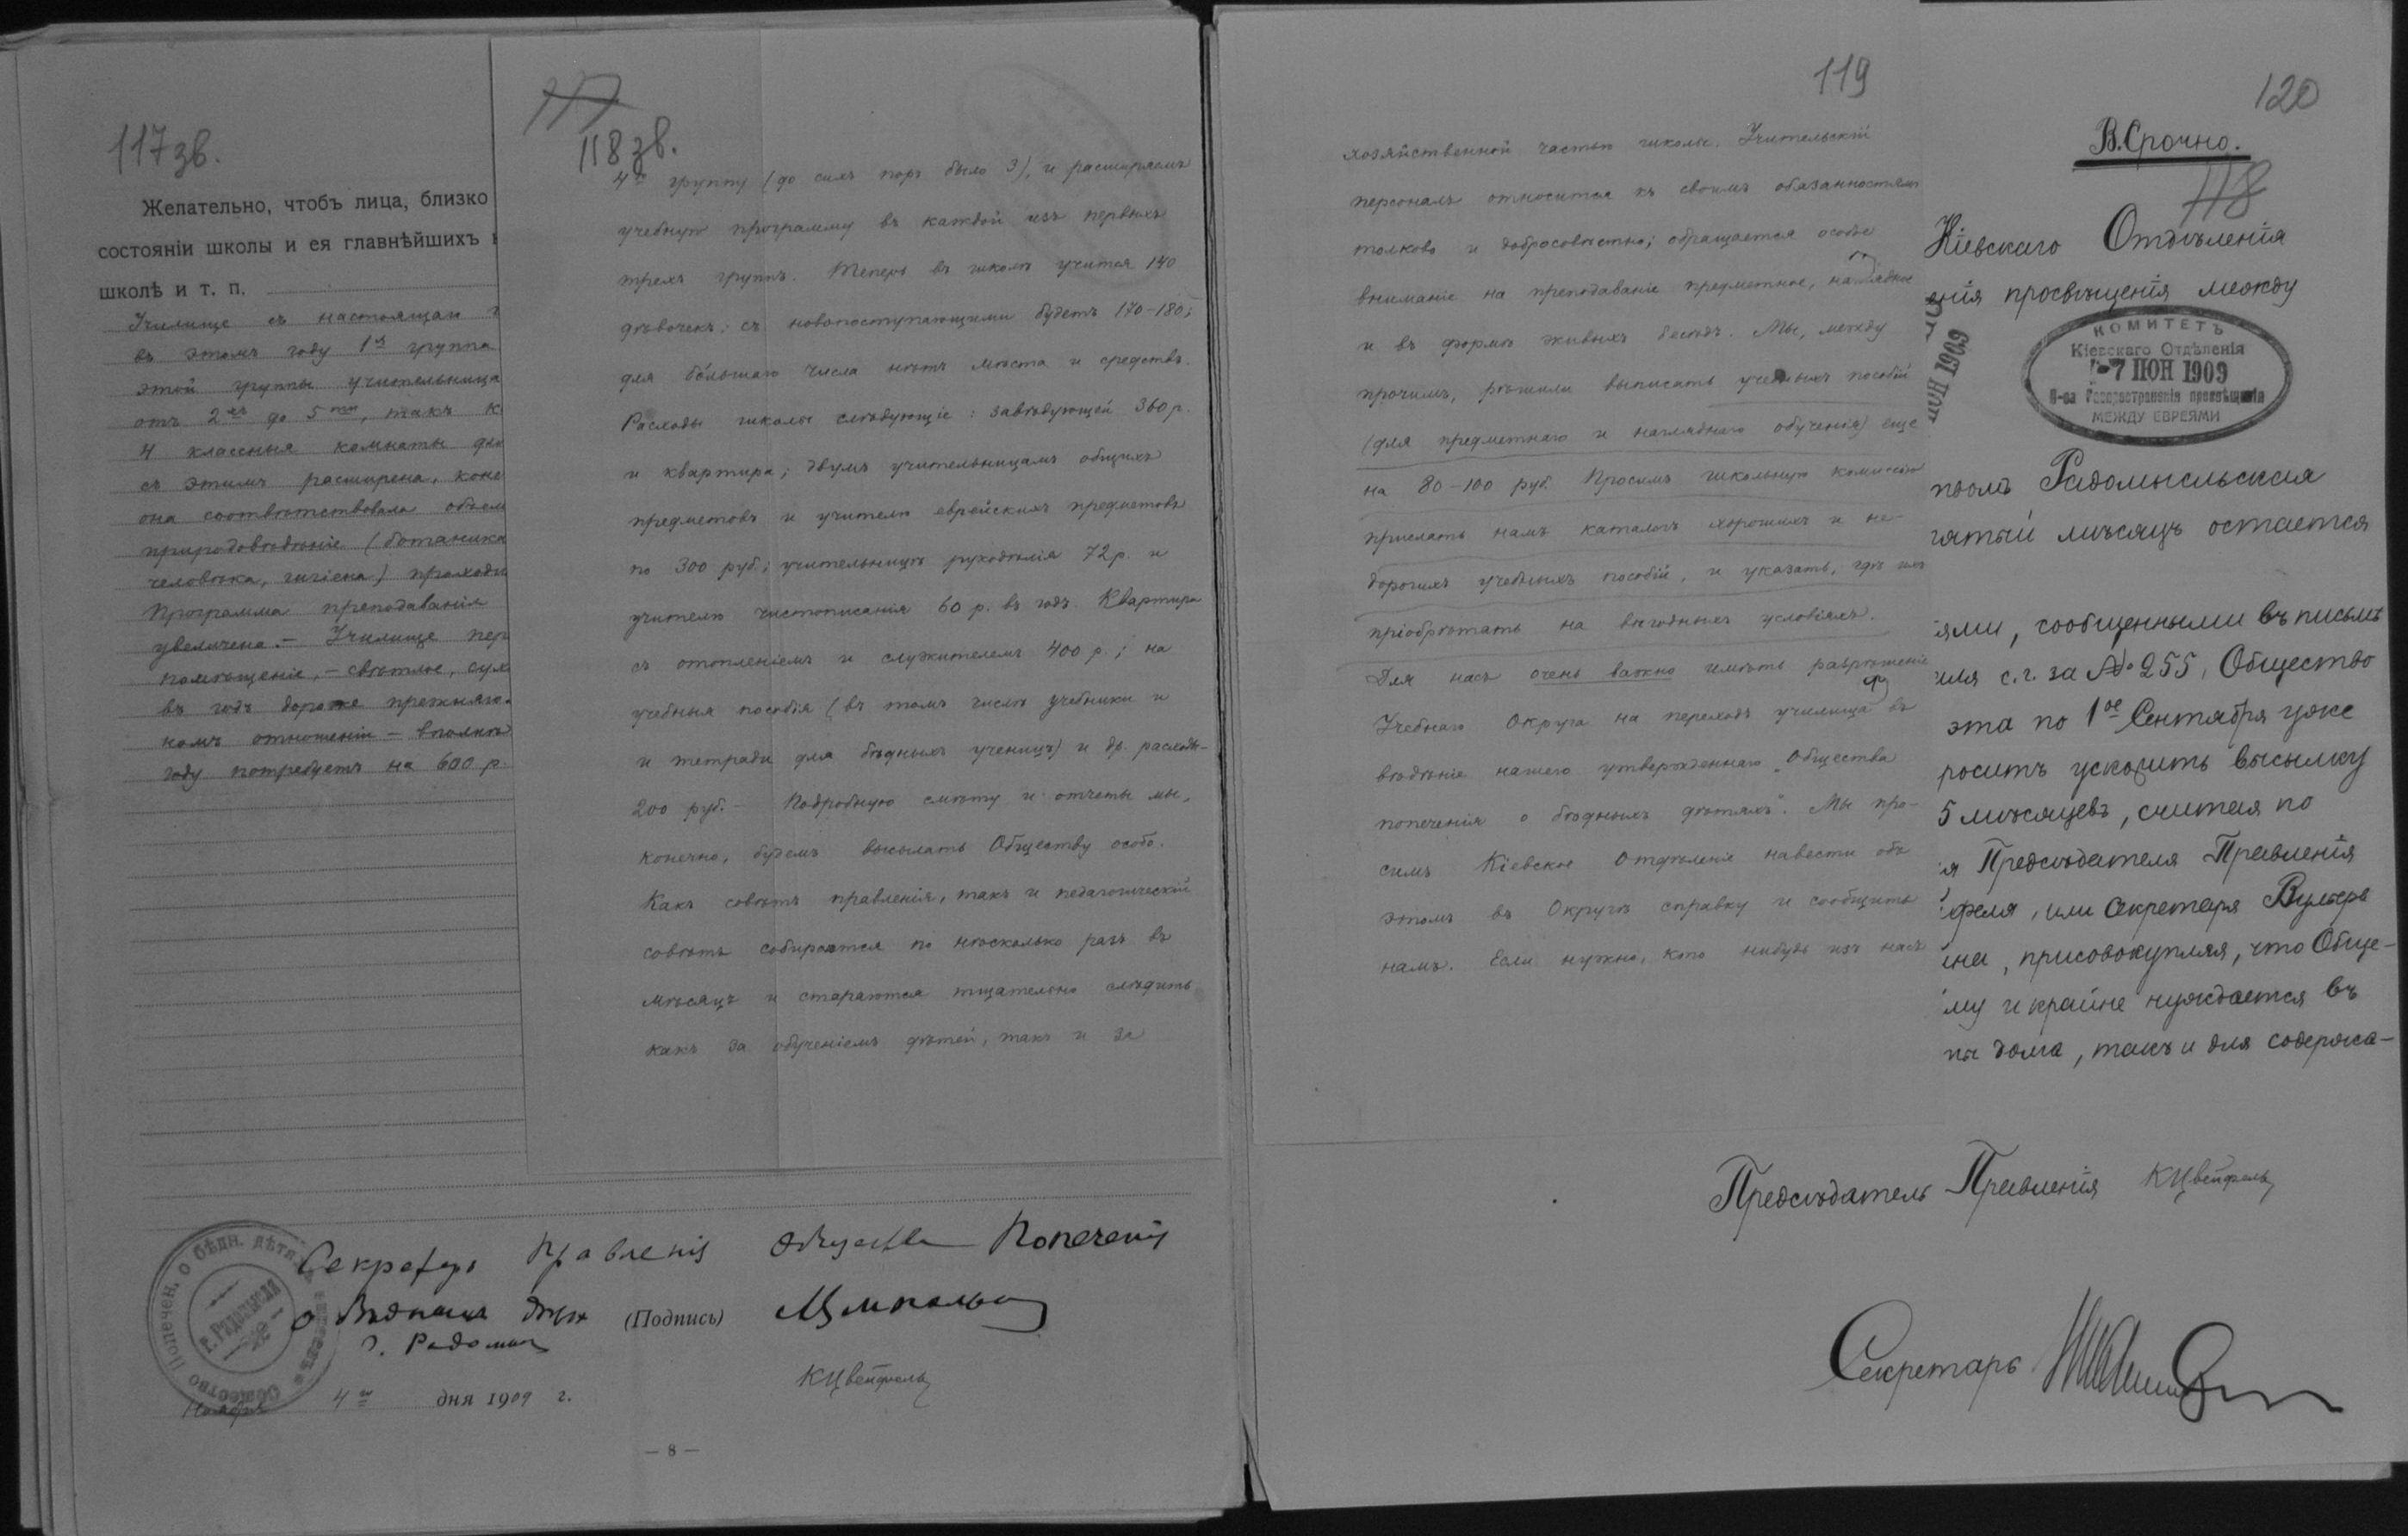 117 зв.
Желательно, чтобъ лица, близко
состояніи школы и ея главнѣйшихъ
школѣ и т. п.
Училище съ настоящаго
въ этомъ году 1я группа
этой группы учительница
отъ 2 до 5, такъ к
4 классныя комнаты
съ этимъ расширена, коне
она соотвѣтствовала объем
природовѣдѣніе (ботаника
человѣка, гигіена) проходи
Программа преподаванія
увеличена. – Училище пер
помѣщеніе, – свѣтлое, сух
въ годъ дороже прежняго.
номъ отношеніи – вполнѣ
году потребуетъ на 600 р.
Секретарь Правленія Общества Попеченія
о бѣдныхъ дѣтяхъ (Подпись)
г. Радомысль
КЦвейфель
Общество Попечен. о бѣдн. дѣтя
г. Радомысля
Ноября 4го дня 1909 г.
— 8 —
117
118 зв.
4ю группу (до сихъ поръ было 3), и расширяемъ
учебную программу въ каждой изъ первыхъ
трехъ группъ. Теперь въ школѣ учится 140
дѣвочекъ; съ новопоступающими будетъ 170–180;
для бо́льшаго числа нѣтъ мѣста и средствъ.
Расходы школы слѣдующіе: завѣдующей 360 р.
и квартира; двумъ учительницамъ общихъ
предметовъ и учителю еврейскихъ предметовъ
по 300 руб.; учительницѣ рукодѣлія 72 р. и
учителю чистописанія 60 р. въ годъ. Квартира
съ отопленіемъ и служителемъ 400 р.; на
учебныя пособія (въ томъ числѣ учебники и
и тетради для бѣдныхъ ученицъ) и др. расходы–
200 руб. – Подробную смѣту и отчеты мы,
конечно, будемъ высылать Обществу особо.
Какъ совѣтъ правленія, такъ и педагогическій
совѣтъ собираются по нѣсколько разъ въ
мѣсяцъ и стараются тщательно слѣдить
какъ за обученіемъ дѣтей, такъ и за
119
хозяйственной частью школы. Учительскій
персоналъ относится къ своимъ обязанностямъ
толково и добросовѣстно; обращается особое
вниманіе на преподаваніе предметное, наглядное
и въ формѣ живыхъ бесѣдъ. Мы, между
прочимъ, рѣшили выписать учебныхъ пособій
(для предметнаго и нагляднаго обученія) еще
на 80–100 руб. Просимъ школьную комиссію
прислать намъ каталогъ хорошихъ и не-
дорогихъ учебныхъ пособій, и указать, гдѣ ихъ
пріобрѣтать на выгодныхъ условіяхъ.
Для насъ очень важно имѣть разрѣшеніе
Учебнаго Округа на переходъ училища въ
вѣдѣніе нашего утвержденнаго „Общества
попеченія о бѣдныхъ дѣтяхъ". Мы про-
симъ Кіевское Отдѣленіе навести объ
этомъ въ Округѣ справку и сообщить
намъ. Если нужно, кто нибудь изъ насъ
120
В.Срочно.
118
Кіевскаго Отдѣленія
енія просвѣщенія между
КОМИТЕТЪ
Кіевскаго Отдѣленія
-7 ІЮН 1909
О-ва Распространенія просвѣщенія
МЕЖДУ ЕВРЕЯМИ
ІЮН 1909
Радомысльская
пятый мѣсяцъ остается
іями, сообщенными въ письмѣ
с.г. за № 255, Общество
эта по 1ое Сентября уже
роситъ ускорить высылку
5 мѣсяцевъ, считая по
я Предсѣдателя Правленія
феля, или Секретаря
ина, присовокупляя, что Обще-
му и крайне нуждается въ
дома, такъ и для содержа-
Предсѣдатель Правленія КЦвейфель
Секретарь